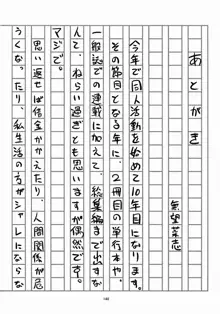 あとがき
無望菜志
今年で同人活動を始めて10年目になります。
その節目となる年に、2冊目の単行本や、
一般誌での連載に加えて、総集編まで出すな
んて、ねらい過ぎとも思いますが偶然です。
マジで。
思い返せば借金かかえたり、人間関係が悪
うくなったり、私生活の方がシャレにならな